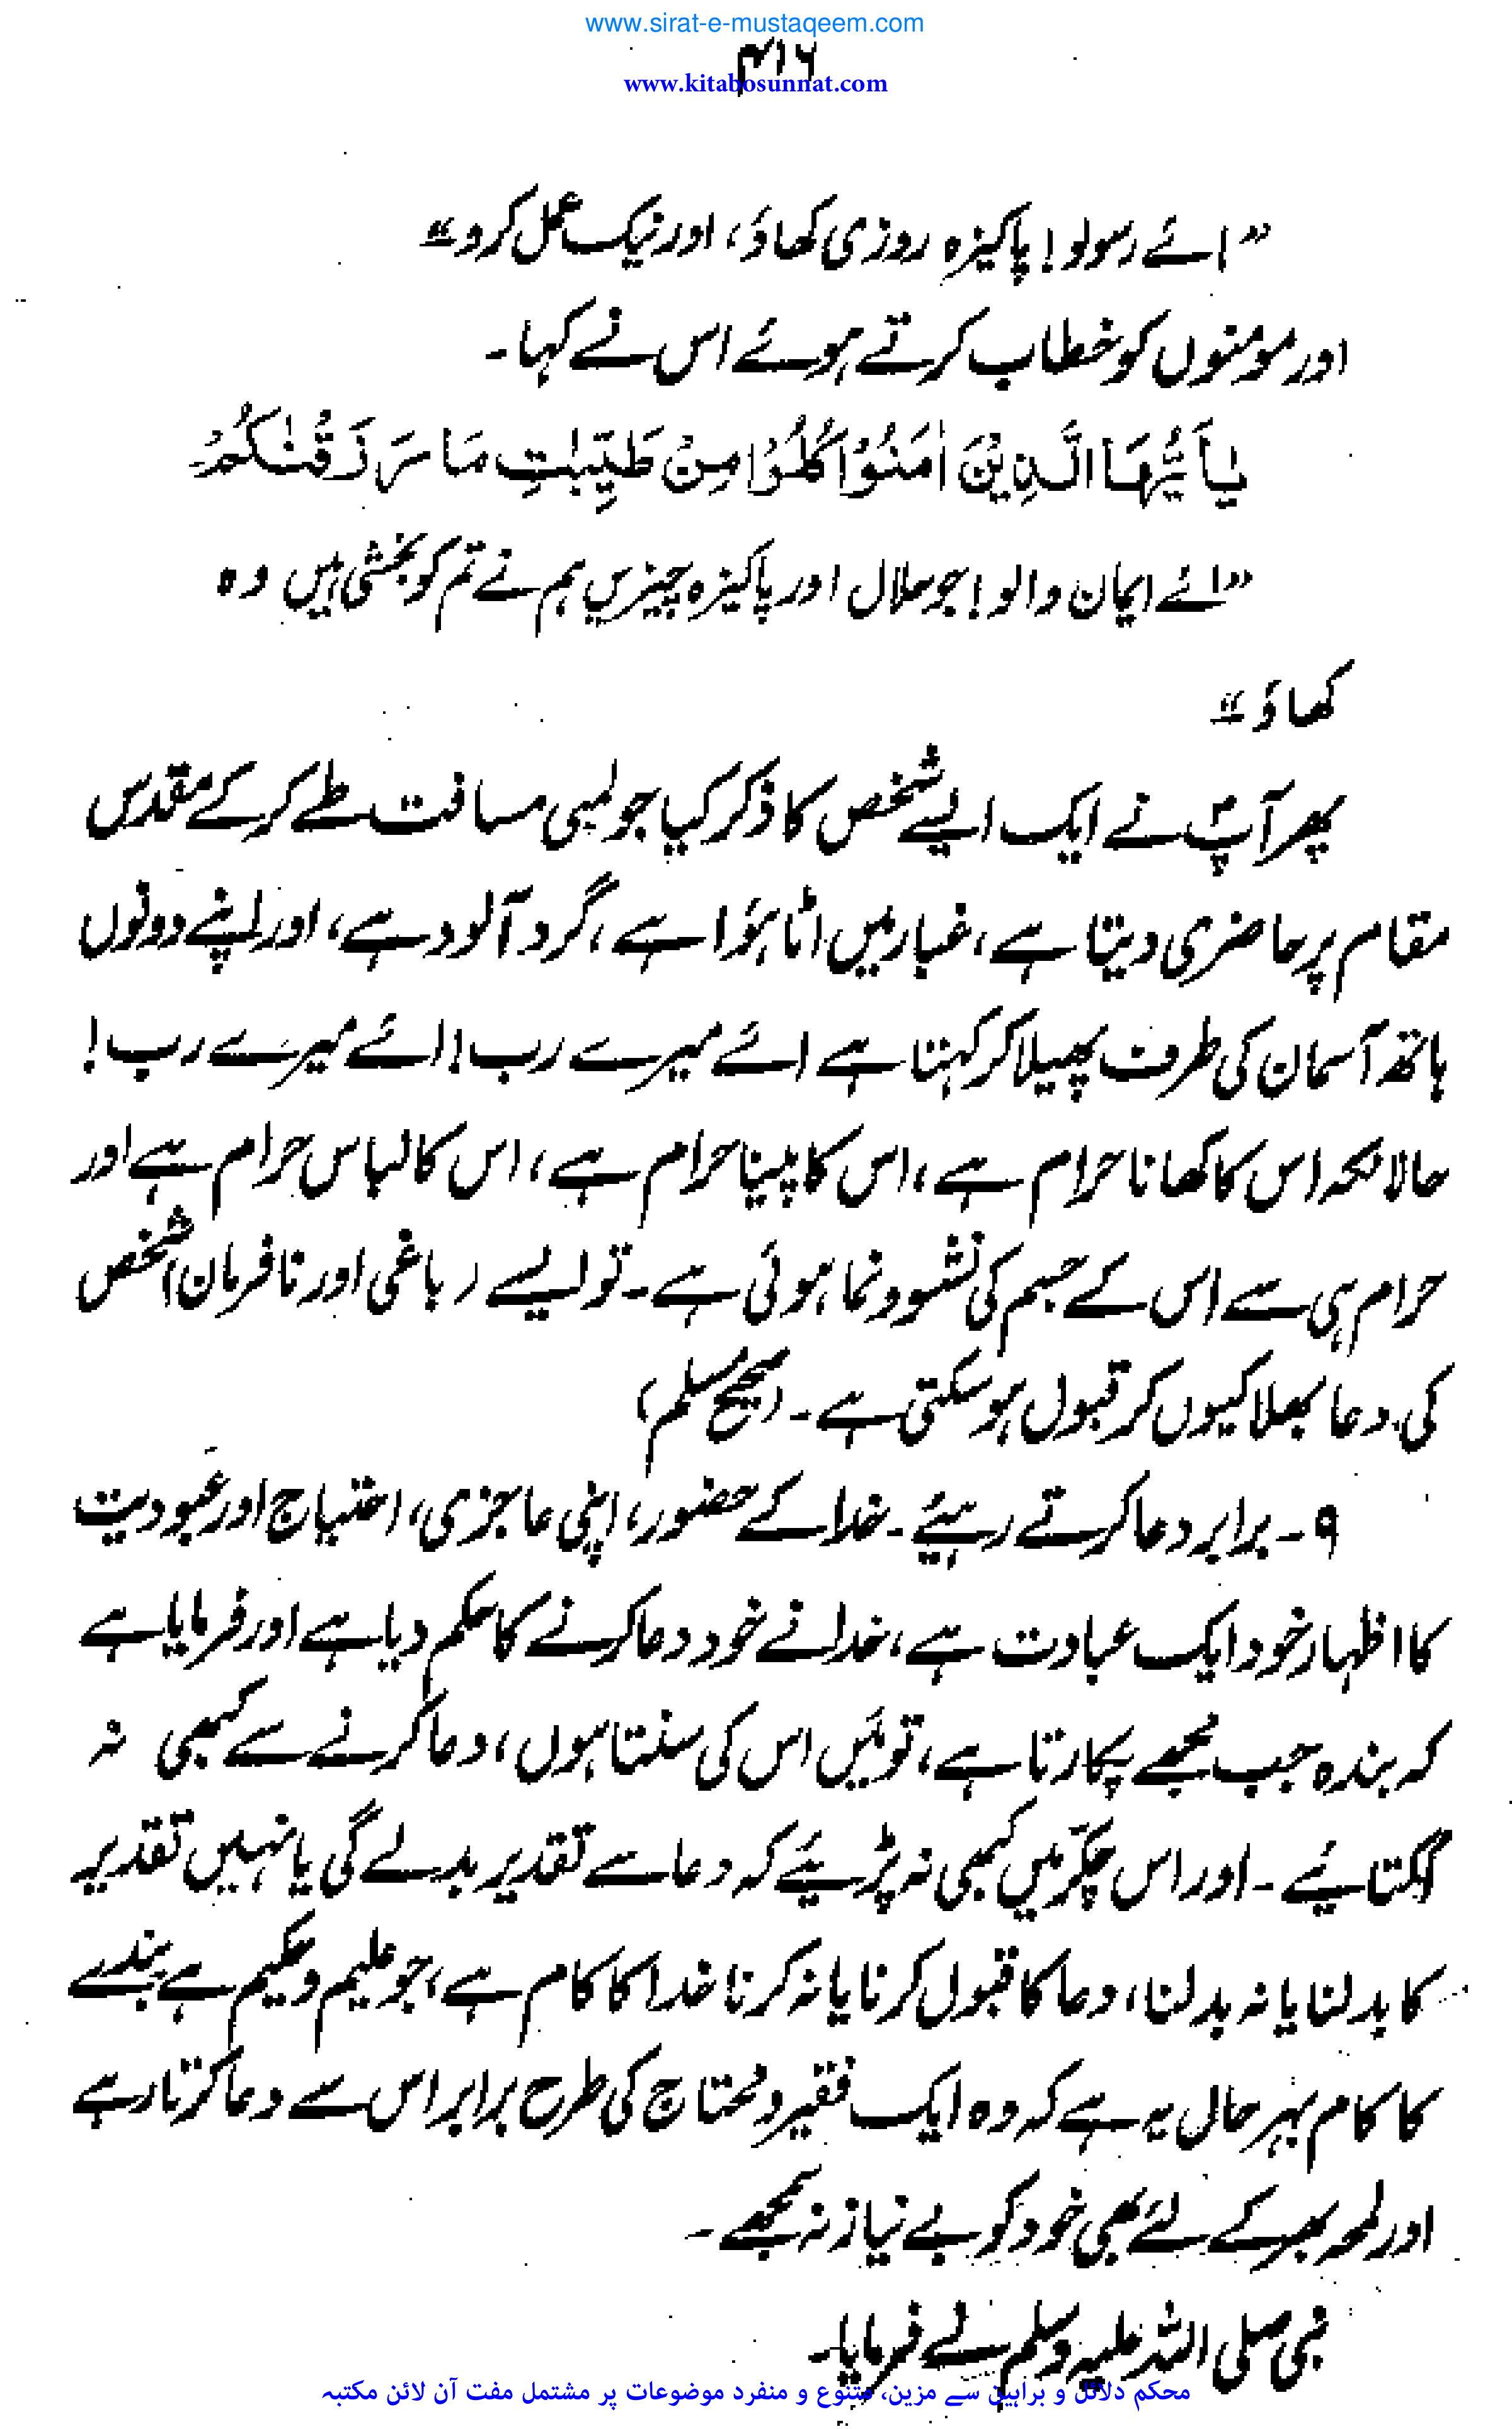 www.sirat-e-mustaqeem.com
۴۱۶
www.kitabosunnat.com
”ائے رسولو! پاکیزہ روزی کھاؤ، اور نیک عمل کرو“
اور مومنوں کو خطاب کرتے ہوئے اس نے کہا۔
يٰاَيُّهَا الَّذِيْنَ اٰمَنُوْا كُلُوْا مِنْ طَيِّبٰتِ مَا رَزَقْنٰكُمْ
”ائے ایمان والو! جو حلال اور پاکیزہ چیزیں ہم نے تم کو بخشی ہیں وہ
کھاؤ“
پھر آپؐ نے ایک ایسے شخص کا ذکر کیا جو لمبی مسافت طے کر کے مقدس
مقام پر حاضری دیتا ہے، غبار میں اٹا ہؤا ہے، گرد آلود ہے، اور اپنے دونوں
ہاتھ آسمان کی طرف پھیلا کر کہتا ہے ائے میرے رب! ائے میرے رب!
حالانکہ اس کا کھانا حرام ہے، اس کا پینا حرام ہے، اس کا لباس حرام ہے اور
حرام ہی سے اس کے جسم کی نشوونما ہوئی ہے۔ تو ایسے (باغی اور نافرمان) شخص
کی دعا بھلا کیوں کر قبول ہو سکتی ہے۔ (صحیح مسلم)
۹۔ برابر دعا کرتے رہیئے۔ خدا کے حضور، اپنی عاجزی، احتیاج اور عَبودیت
کا اظہار خود ایک عبادت ہے، خدا نے خود دعا کرنے کا حکم دیا ہے اور فرمایا ہے
کہ بندہ جب مجھے پکارتا ہے، تو مَیں اس کی سنتا ہوں، دعا کرنے سے کبھی نہ
اکتایئے۔ اور اس چکّر میں کبھی نہ پڑیئے کہ دعا سے تقدیر بدلے گی یا نہیں تقدیر
کا بدلنا یا نہ بدلنا، دعا کا قبول کرنا یا نہ کرنا خدا کا کام ہے، جو علیم و حکیم ہے بندے
کا کام بہرحال یہ ہے کہ وہ ایک فقیر و محتاج کی طرح برابر اس سے دعا کرتا رہے
اور لمحہ بھر کے لئے بھی خود کو بے نیاز نہ سمجھے۔
نبی صلی اللہ علیہ وسلم نے فرمایا۔
محکم دلائل و براہین سے مزین، متنوع و منفرد موضوعات پر مشتمل مفت آن لائن مکتبہ